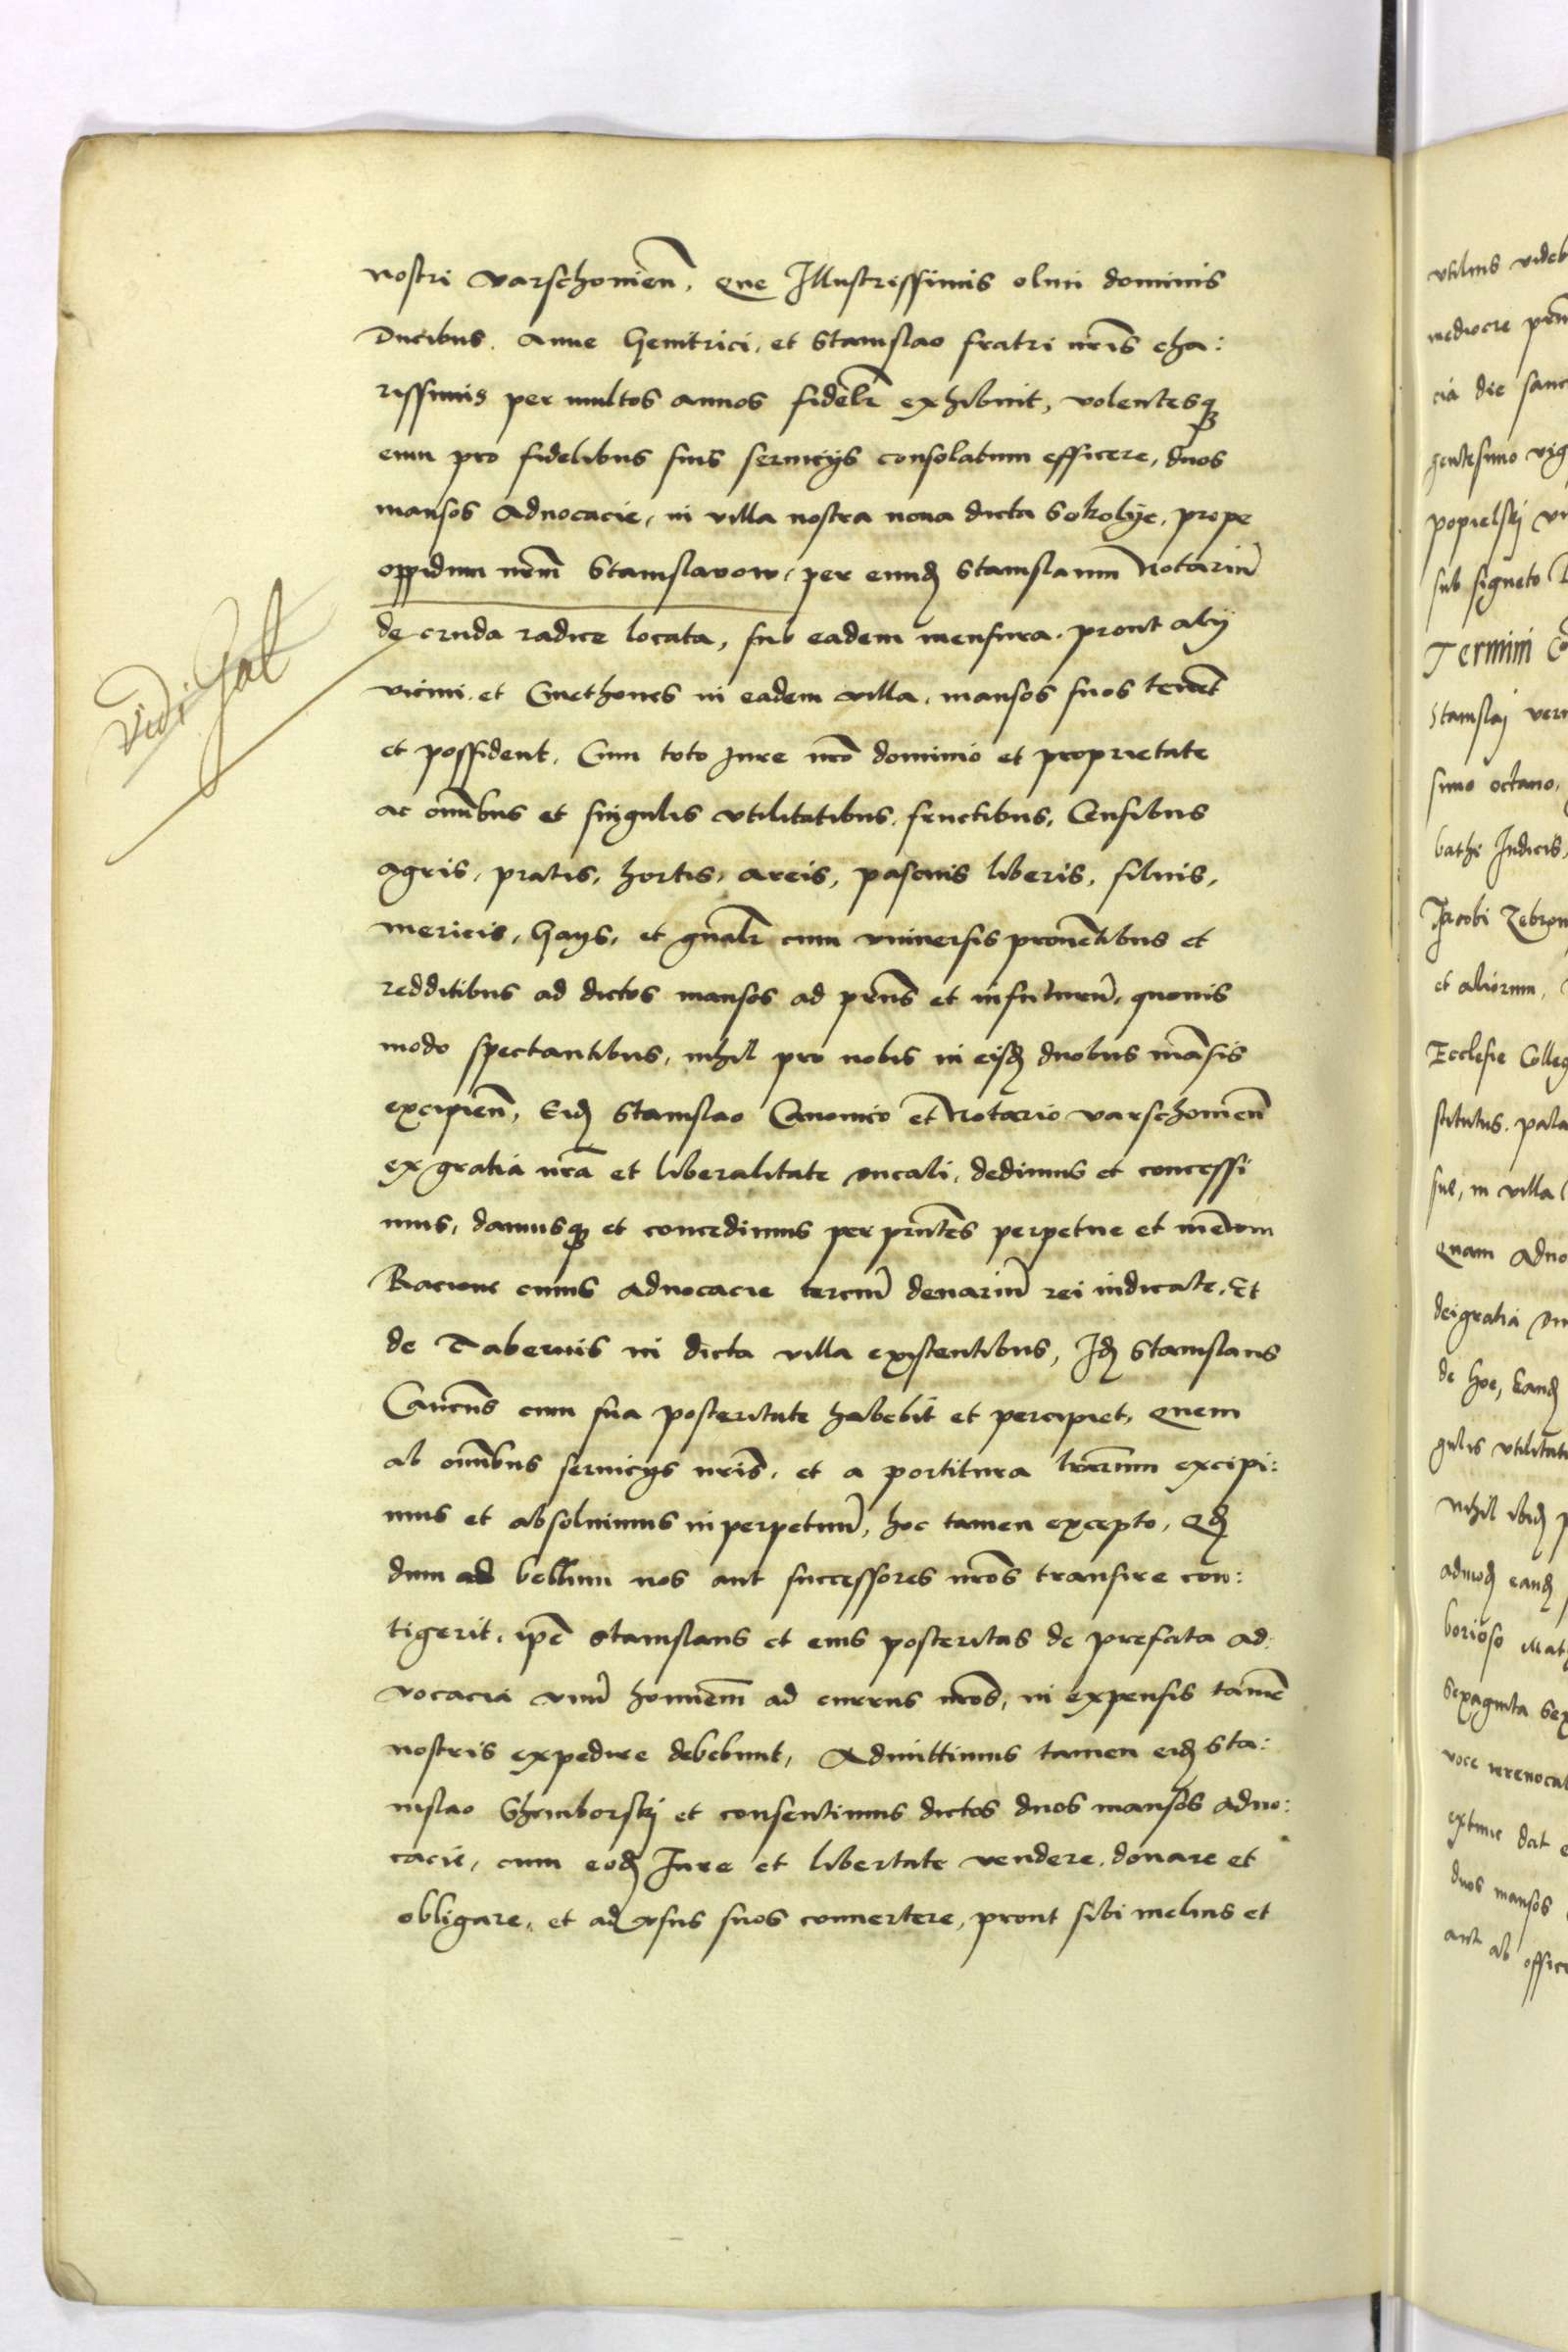 nostri varschouien̄. Que Illustrissimis olim dominis
Ducibus. Anne Genitrici, et Stanislao fratri nr̄is cha:
rissimis per multos annos fidel̄r exhibuit, volentesq₃
eum pro fidelibus suis seruicijs consolatum efficere, duos
mansos aduocacie, in villa nostra noua dicta Sokolije, prope
oppidum nr̄m Stanislavow, per eund̨ Stanislaum Notariū
de cruda radice locata, sub eadem mensura. prout alij
vicini et Cmethones in eadem villa, mansos suos tenēt
et possident. Cum toto Jure nr̄o dominio et proprietate
ac om̄ibus et singulis vtilitatibus, fructibus, Censibus
agris, pratis, hortis, areis, pascuis liberis, siluis,
mericis, Gays, et gn̄alr̄ cum vniuersis prouētibus et
redditibus ad dictos mansos ad pr̄ns et infuturū, quouis
modo spectantibus, nihil pro nobis in eisd̨ duobus māsis
excipien̄, Eid̨ Stanislao Canonico et Notario varschouien̄
ex gratia nr̄a et liberalitate ducali, dedimus et concessi
mus, damusq₃ et concedimus per pn̄tes perpetue et in euom
Racione cuius aduocacie terciū denariū rei iudicate, Et
de Tabernis in dicta villa existentibus, Id̨ Stanislaus
Canc̄us cum sua posteritate habebit et percipiet, Quem
ab om̄ibus seruicijs nr̄is, et a portitura lr̄arum excipi:
mus et absoluimus in perpetuū, hoc tamen excepto, Qd̨
dum ad bellum nos aut successores nr̄os transire con:
tigerit, ip̄e Stanislaus et eius posteritas de prefata ad:
vocacia vnū hominem ad currus nr̄os, in expensis tamē
nostris expedire debebunt, Admittimus tamen eid̨ Sta:
nislao Ghemborskj et consentimus dictos duos mansos aduo:
cacie, cum eod̨ Jure et libertate vendere, donare et
obligare, et ad vsus suos conuertere, prout sibi melius et
Vidi Gal
vtilius videb
mediocre
cia die sanc
gentesimo vig
popielskj
sub signeto
Termini
Stanislaj
simo octauo,
bathe Judicis,
Jacobi Zebron
et aliorum,
Ecclesie Colleg
stitutus. pala
sue, in villa
Quam Aduo
dei gratia
de hoc, Eand̨
gulis vtilitat
Nihil ibid̨
admod̨ eand̨
borioso Mat
Sexaginta Sex
voce
extunc dat
duos mansos
aut ab offici